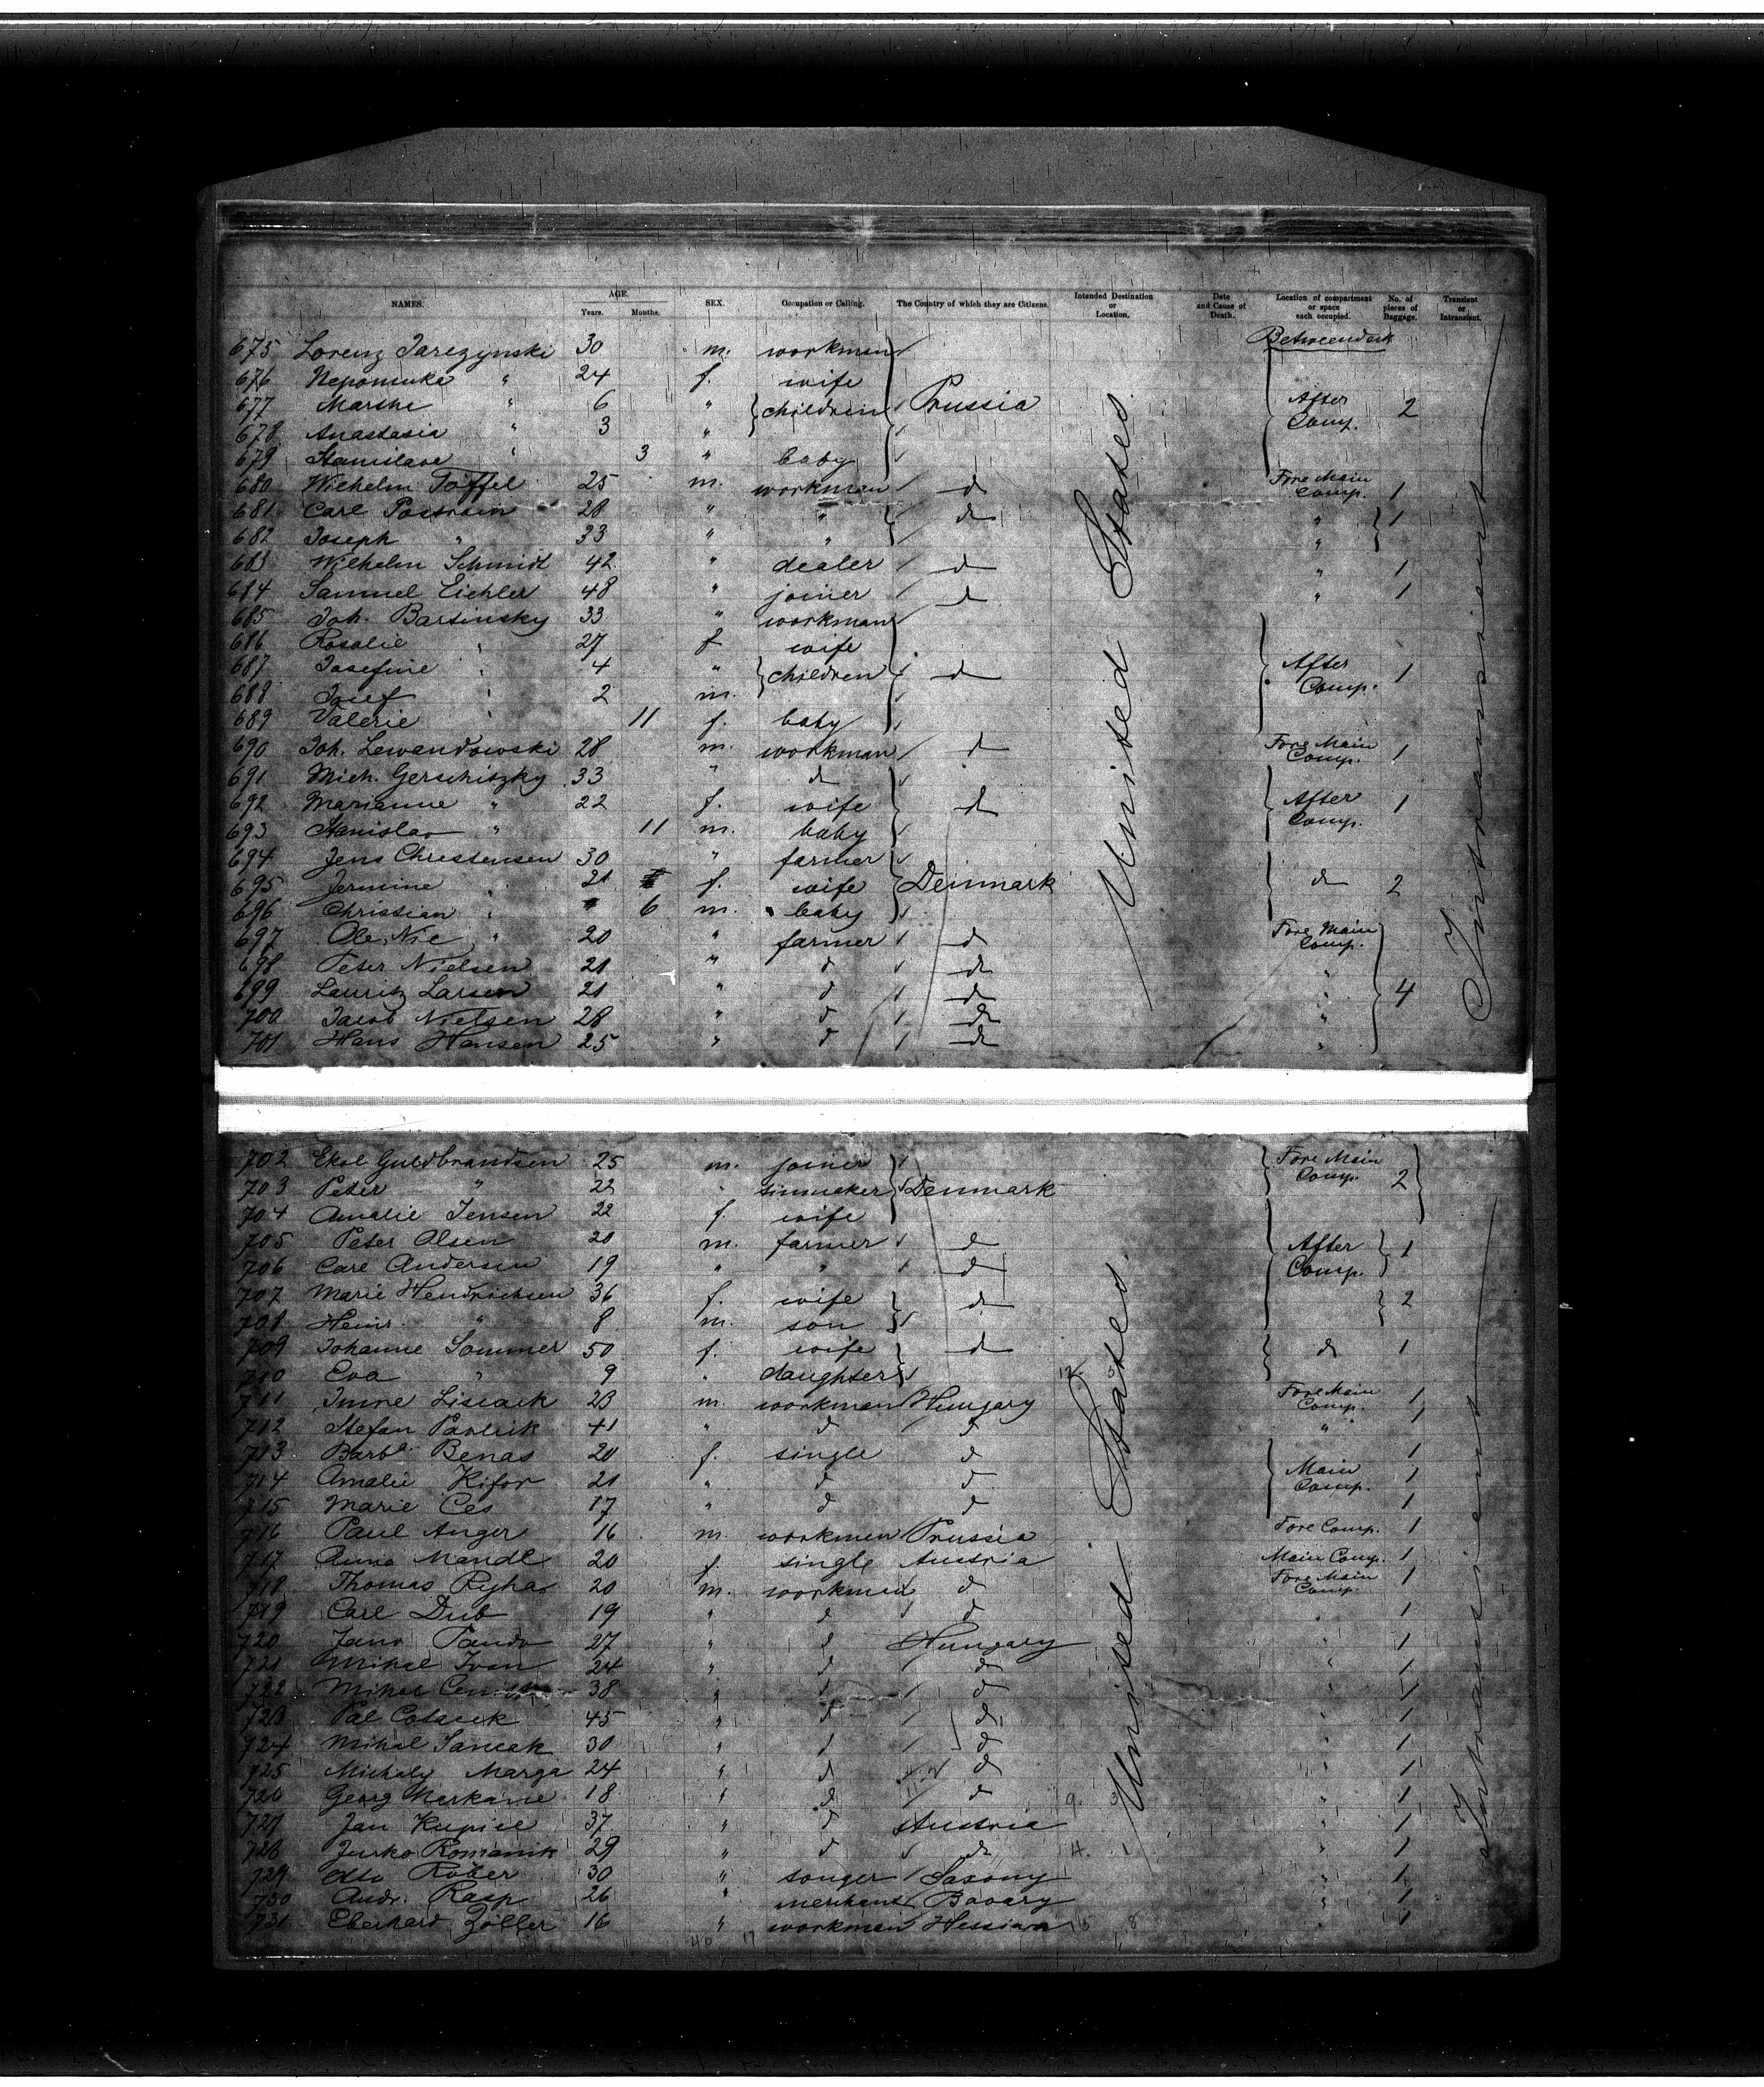 NAMES. AGE. Years. Months. SEX. Occupation or Calling. The Country of which they are Citizens. Intended Destination or Location. Date and Cause of Death. Location of compartment or space each occupied. No. of pieces of Baggage. Transient or Intransient.
Betweendeck
675 Lorenz Jarczynski 30 m. workman
676 Nepomuka " 24 f. wife
677 " 6 " children Prussia After Comp. 2
678 Anastasia " 3 "
679 Stanislave " 3 " baby
680 Wilhelm Töffel 25 m. workman d Fore Main Comp. 1
681 Carl 28 " " d " 1
682 Joseph " 33 " " "
683 Wilhelm Schmidt 42 " dealer d " 1
684 Samuel Eichler 48 " joiner d " 1
685 Joh. Barsinsky 33 " workman
686 Rosalie " 27 f wife
687 Josefine " 4 " children d After Comp. 1
688 Josef " 2 m.
689 Valerie " 11 f. baby
690 Joh. Lewandowski 28 m. workman d Fore Main Comp. 1
691 Mich. Gerschitzky 33 " d
692 Marianne " 22 f. wife d After Comp. 1
693 Stanislav " 11 m. baby
694 Jens Christensen 30 " farmer
695 Jermine " 21 f. wife Denmark d 2
696 Christian " 6 m. baby
697 Ole Nie " 20 " farmer d Fore Main Comp.
698 Peter Nielsen 21 " d d "
699 Lauritz Larsen 21 " d d " 4
700 Jacob Nielsen 28 " d d "
701 Hans Hansen 25 " d d "
United States
Intransient
702 Guldbrandsen 25 m. joiner Fore Main Comp. 2
703 Peter " 22 " tinmaker Denmark
704 Amalie Jensen 22 f. wife
705 Peter Olsen 20 m. farmer d After Comp. 1
706 Carl Andersen 19 " " d
707 Marie Hendrichsen 36 f. wife d 2
708 Heinr. " 8 m. son
709 Johanne Sommer 50 f. wife d d 1
710 Eva " 9 " daughter
711 Imre 23 m. workman Hungary Fore Main Comp. 1
712 Stefan Pavlrik 41 " d d " " 1
713 Barba. Benas 20 f. single d 1
714 Amalie Kifor 21 " d d Main Comp. 1
715 Marie Ces 17 " d d 1
716 Paul Anger 16 m. workmen Prussia Fore Comp. 1
717 Anna Mandl 20 f. single Austria Main Comp. 1
718 Thomas Ryha 20 m. workmen d Fore Main Comp. 1
719 Carl Dub 19 " d d " 1
720 27 " d Hungary " 1
721 Mihal Ivan 24 " d d " 1
722 Mihal 38 " d d " 1
723 Pal 45 " d d " 1
724 Mihal Sancak 30 " d d " 1
725 Michaly Marga 24 " d d " 1
726 Georg 18 " d d " 1
727 Jan Kupiec 37 " d Austria " 1
728 Jurko Romanik 29 " d d " 1
729 Otto Röber 30 " Saxony " 1
730 Andr. Rasp 26 " merchant Bavary " 1
731 Eberhard Zöller 16 " workman Hessian " 1
United States.
Intransient